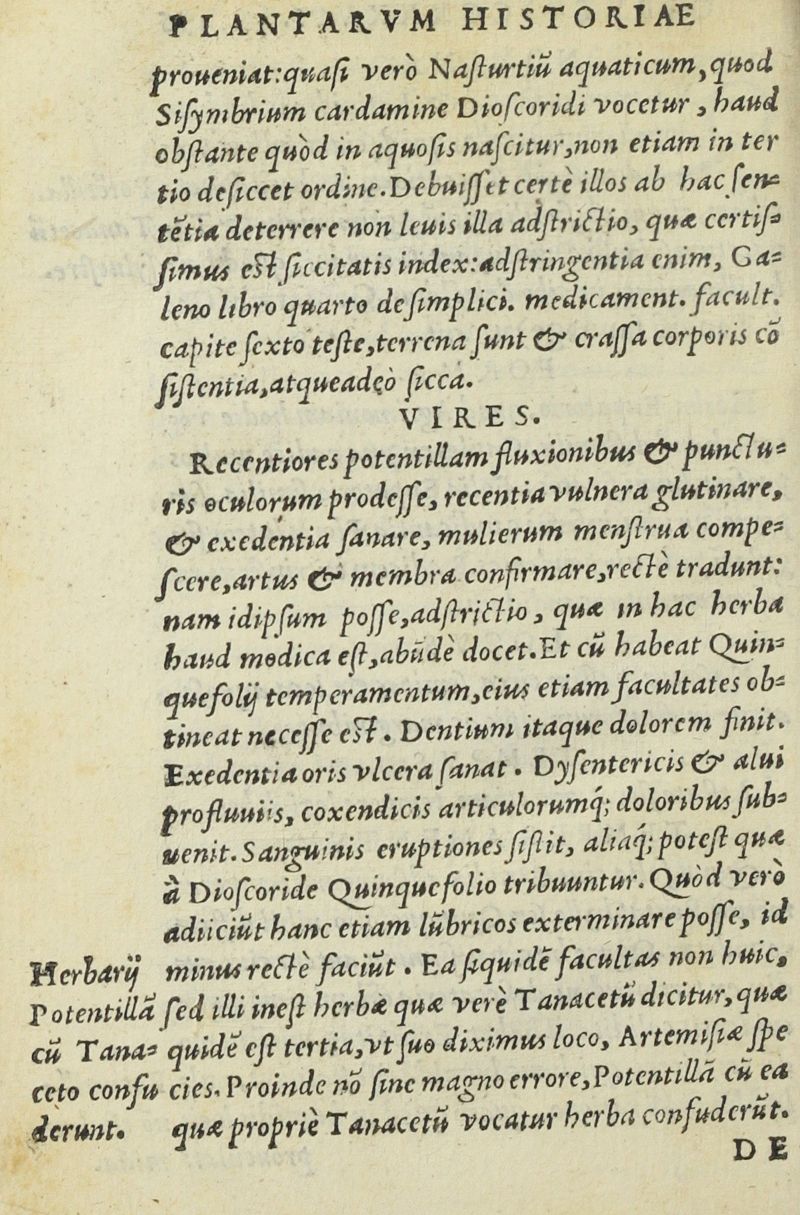 PLANTARVM HISTORIAE
proueniat:quasi verò Nasturtiũ aquaticum, quod
Sisymbrium cardamine Dioscoridi vocetur, haud
obstante quòd in aquosis nascitur,non etiam in ter
tio desiccet ordine.Debuisset certè illos ab hac sen-
tẽtia deterrere non leuis illa adstrictio, quæ certis-
simus est siccitatis index:adstringentia enim, Ga-
leno libro quarto de simplici. medicament. facult.
capite sexto teste,terrena sunt & crassa corporis cõ
sistentia,atqueadeò sicca.
VIRES.
Recentiores potentillam fluxionibus & punctu-
ris oculorum prodesse, recentia vulnera glutinare,
& exedentia sanare, mulierum menstrua compe-
scere,artus & membra confirmare,rectè tradunt:
nam idipsum posse,adstrictio, quæ in hac herba
haud modica est,abũdè docet.Et cũ habeat Quin-
quefolij temperamentum,eius etiam facultates ob-
tineat necesse est. Dentium itaque dolorem finit.
Exedentia oris vlcera sanat. Dysentericis & alui
profluuiis, coxendicis articulorumq́; doloribus sub-
uenit. Sanguinis eruptiones sistit, aliaq́; potest quæ
à Dioscoride Quinquefolio tribuuntur. Quòd verò
adiiciũt hanc etiam lũbricos exterminare posse, id
minus rectè faciũt. Ea siquidẽ facultas non huic,
sed illi inest herbæ quæ verè Tanacetũ dicitur, quæ
quidẽ est tertia,vt suo diximus loco, Artemisiæ spe
cies. Proinde nõ sine magno errore,Potentillã cũ ea
quæ propriè Tanacetũ vocatur herba confuderũt.
Herbarij
Potentillã
cũ Tana-
ceto confu
derunt.
DE